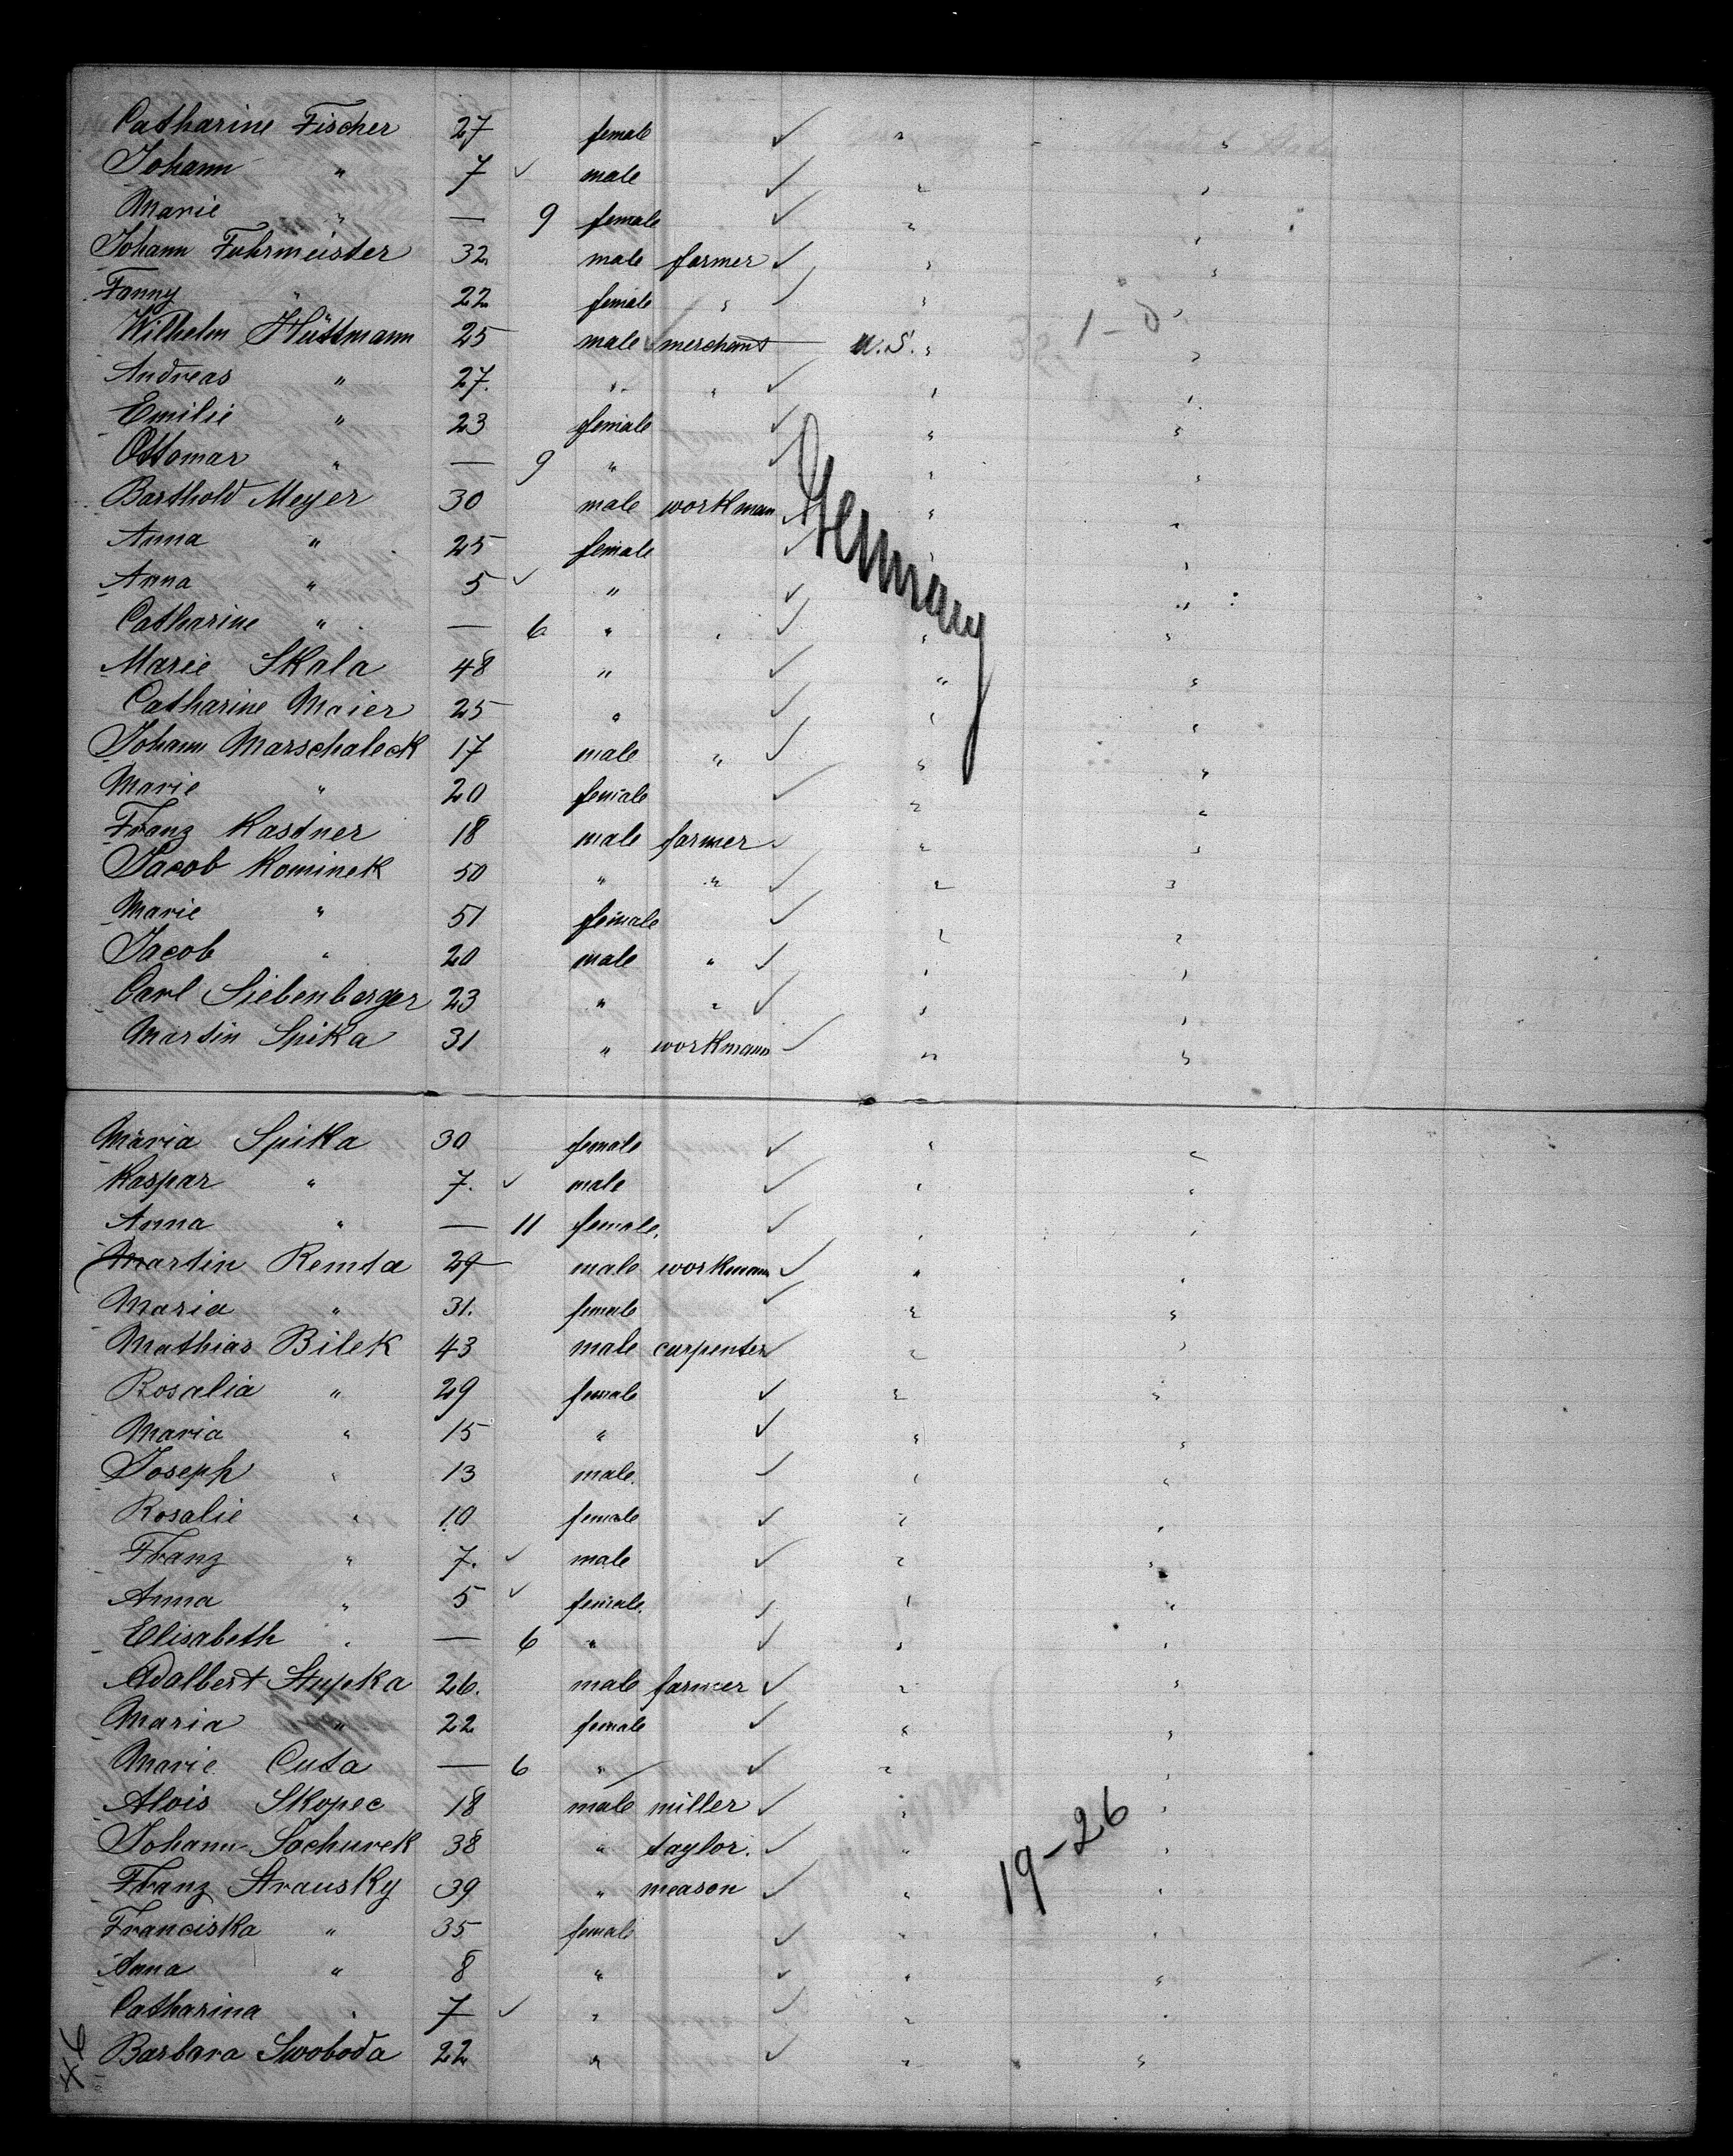 Catharine Fischer 27 female ✓ " "
Johann " 7 ✓ male ✓ " "
Marie " — 9 female ✓ " "
Johann Fuhrmeister 32 male farmer ✓ " "
Fanny " 22 female " ✓ " "
Wilhelm Hüttmann 25 male merchant U.S. " "
Andreas " 27. " " ✓ " "
Emilie " 23 female ✓ " "
Ottomar " — 9 " ✓ " "
Barthold Meyer 30 male workman ✓ " "
Germany
Anna " 25 female ✓ "
Anna " 5 ✓ " ✓ "
Catharine " — 6 " ✓ " "
Marie Skala 48 " ✓ " "
Catharine Maier 25 " ✓ " "
Johann Marschaleck 17 male " ✓ " "
Marie " 20 female ✓ " "
Franz Kastner 18 male farmer ✓ " "
Jacob Kominek 50 " " ✓ " "
Marie " 51 female ✓ " "
Jacob " 20 male " ✓ " "
Carl Siebenberger 23 " " ✓ " "
Martin Spika 31 " workmann ✓ " "
Maria Spika 30 female ✓ " "
Kaspar " 7. ✓ male ✓ " "
Anna " — 11 female. ✓ " "
Martin Remta 29 male workmann ✓ " "
Maria " 31. female ✓ " "
Mathias Bilek 43 male carpenter ✓ " "
Rosalia " 29 female ✓ " "
Maria " 15 " ✓ " "
Joseph " 13 male. ✓ " "
Rosalie " 10 female ✓ " "
Franz " 7. ✓ male ✓ " "
Anna " 5 ✓ female. ✓ " "
Elisabeth " — 6 " ✓ " "
Adalbert Stupka 26. male farmer ✓ " "
Maria " 22 female ✓ " "
Marie Cuta — 6 " ✓ " "
Alois Skopec 18 male miller ✓ " "
Johann Sochurek 38 " taylor. ✓ " "
19-26
Franz Strausky 39 " meason ✓ " "
Franciska " 35 female ✓ " "
Anna " 8 " ✓ " "
Catharina " 7 ✓ " ✓ " "
46
Barbara Swoboda 22 " ✓ " "